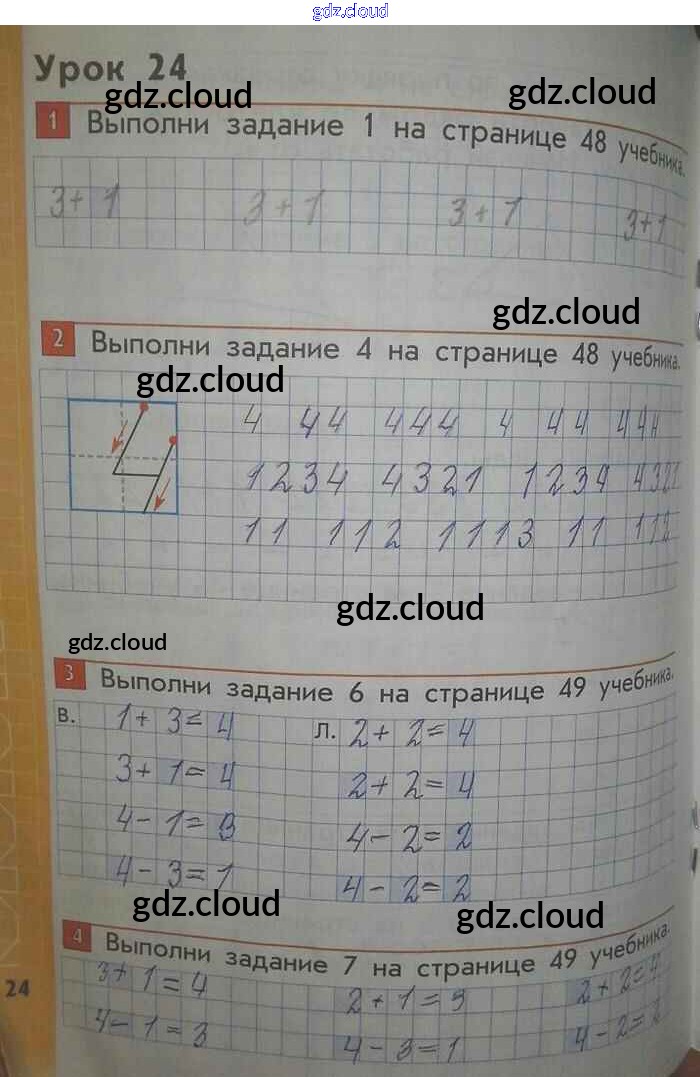 gdz.cloud
Урок 24
gdz.cloud gdz.cloud
1 Выполни задание 1 на странице 48 учебника.
3+1 3+1 3+1 3+1
gdz.cloud
2 Выполни задание 4 на странице 48 учебника.
gdz.cloud
4 44 444 4 44 444
1234 4321 1234 4321
11 112 1113 11 112
gdz.cloud
gdz.cloud
3 Выполни задание 6 на странице 49 учебника.
В. 1+3=4 Л. 2+2=4
3+1=4 2+2=4
4-1=3 4-2=2
4-3=1 4-2=2
gdz.cloud gdz.cloud
4 Выполни задание 7 на странице 49 учебника.
3+1=4 2+1=3 2+2=4
4-1=3 4-3=1 4-2=2
24